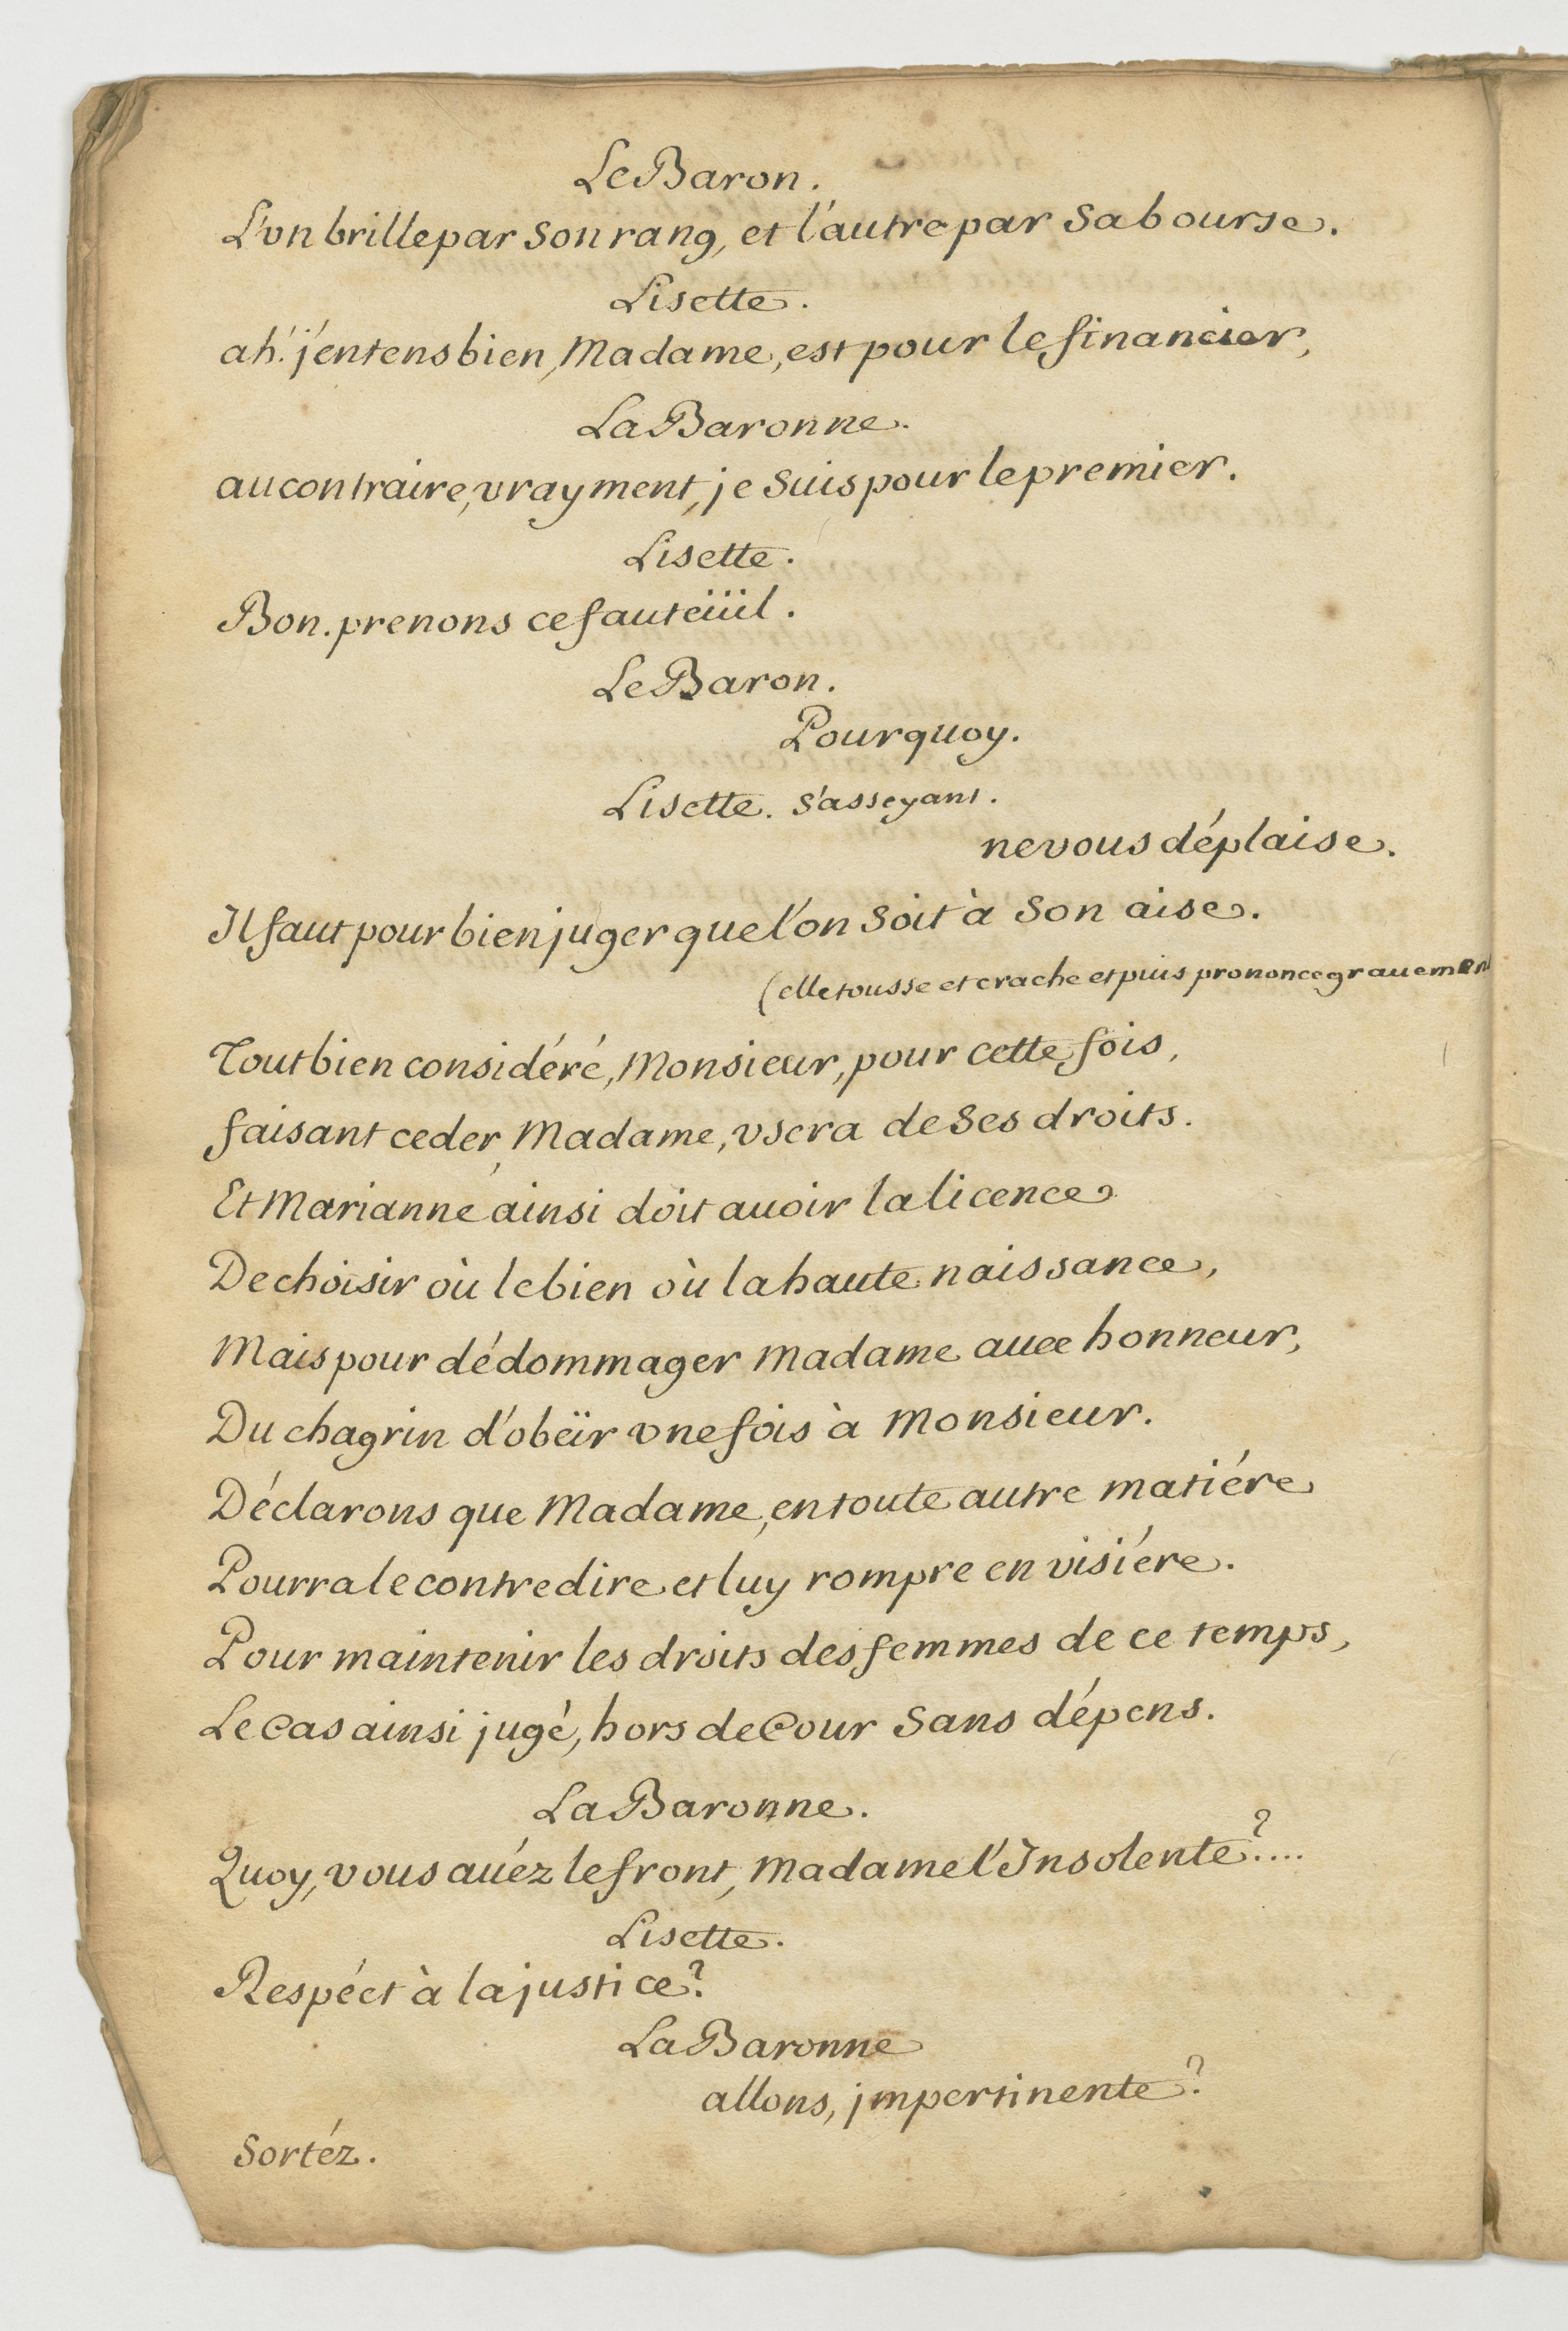 Le Baron.
L'vn brille par Son rang, et l'autre par Sa bourse.
Lisette.
ah! j'entens bien, Madame, est pour le financier,
La Baronne.
au contraire, vrayment, je Suis pour le premier.
Lisette.
Bon. prenons ce fauteüil.
Le Baron.
Pourquoy.
Lisette. S'asseyant.
ne vous déplaise.
Il faut pour bien juger que l'on Soit à Son aise.
(elle tousse et crache et puis prononce grauement
Tout bien considéré, Monsieur, pour cette fois,
faisant ceder, Madame, vsera de Ses droits.
Et Marianne ainsi doit auoir la licence
De choisir où le bien où la haute naissance,
Mais pour dédommager Madame auec honneur,
Du chagrin d'obëir vne fois à Monsieur.
Déclarons que Madame, en toute autre matiére
Pourra le contredire et luy rompre en visiére.
Pour maintenir les droits des femmes de ce temps,
Le Cas ainsi jugé, hors de Cour Sans dépens.
La Baronne.
Quoy, vous auéz le front, Madame l'Insolente?....
Lisette.
Respéct à la justice?
La Baronne
allons, jmpertinente?
Sortéz.